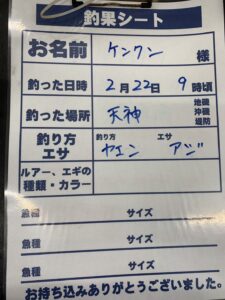 釣果シート
お名前 ケンケン 様
釣った日時 2月22日 9時頃
釣った場所 天神 地磯 沖磯 堤防
釣り方 エサ 釣り方 ヤエン エサ アジ
ルアー、エギの種類・カラー
魚種 サイズ
魚種 サイズ
魚種 サイズ
お持ち込みありがとうございました。